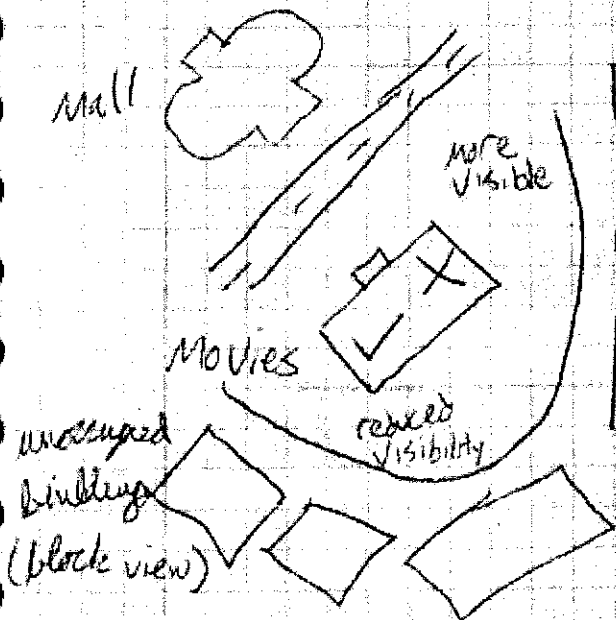 Mall
more
visible
Movies
reduced
visibility
unoccupied
buildings
(block view)